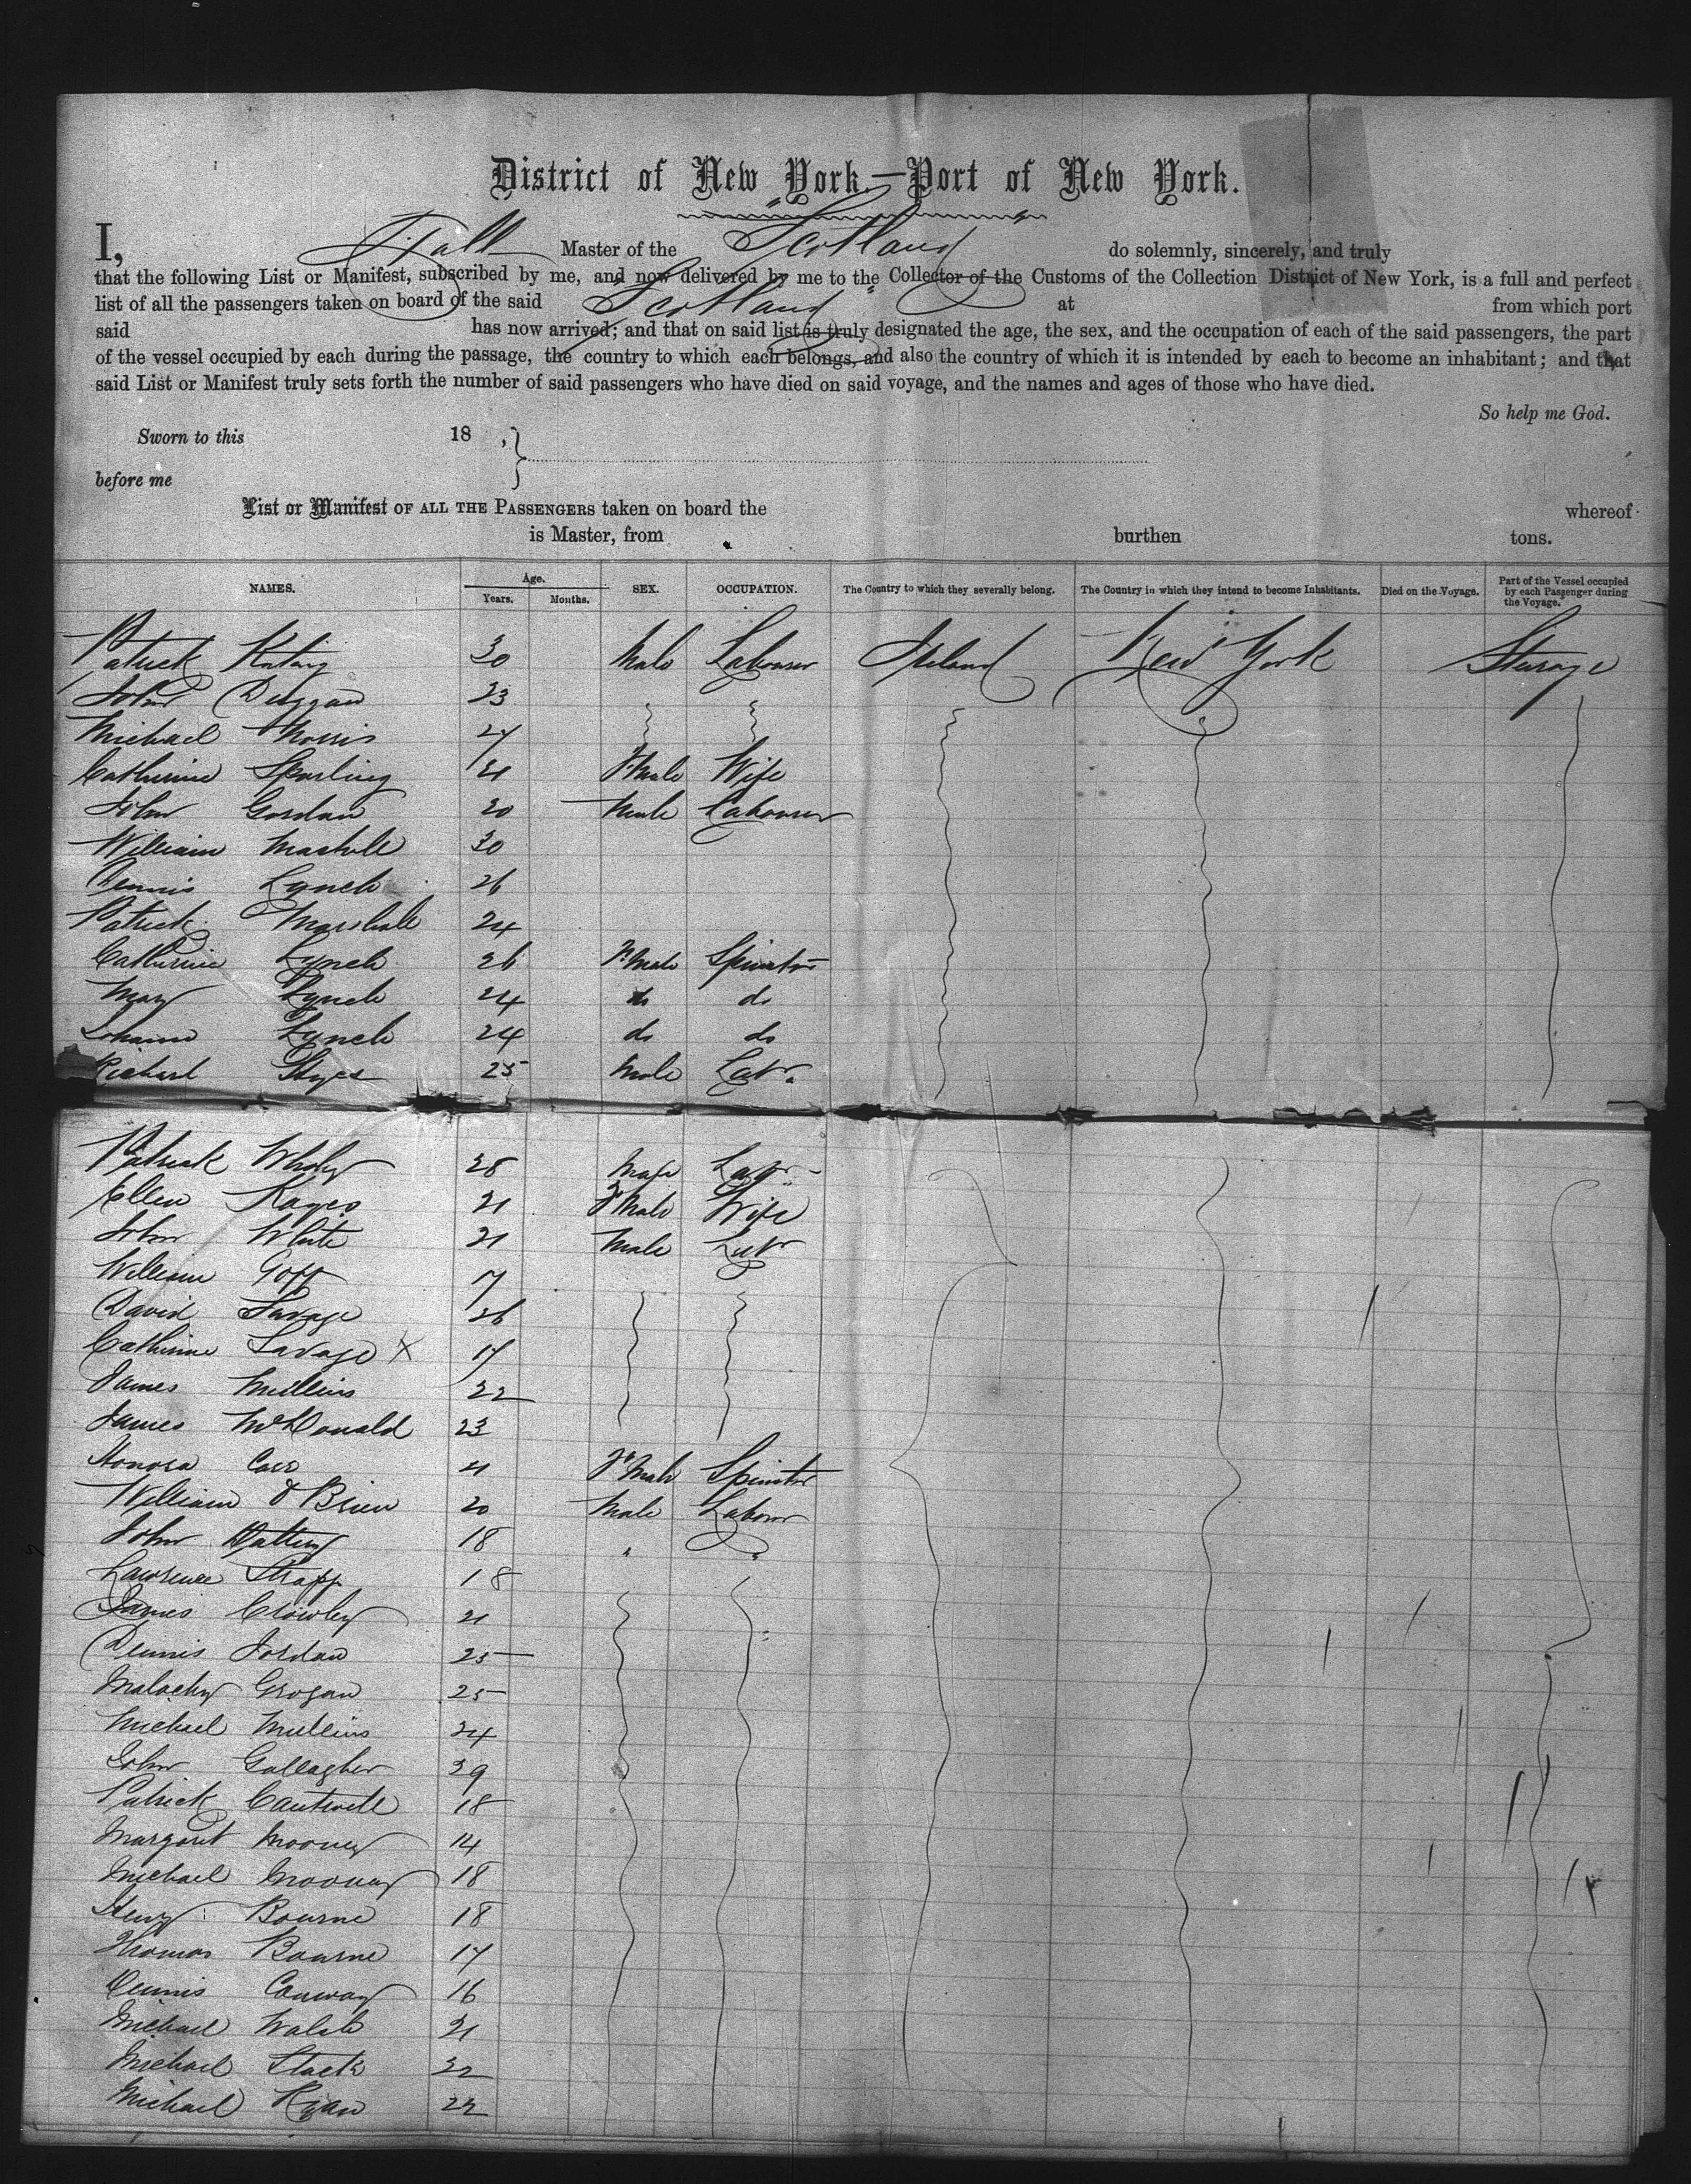 District of New York.—Port of New York.
I, Master of the "Scotland" do solemnly, sincerely, and truly
that the following List or Manifest, subscribed by me, and now delivered by me to the Collector of the Customs of the Collection District of New York, is a full and perfect
list of all the passengers taken on board of the said Scotland at from which port
said has now arrived; and that on said list is truly designated the age, the sex, and the occupation of each of the said passengers, the part
of the vessel occupied by each during the passage, the country to which each belongs, and also the country of which it is intended by each to become an inhabitant; and that
said List or Manifest truly sets forth the number of said passengers who have died on said voyage, and the names and ages of those who have died.
So help me God.
Sworn to this 18 ,
before me
List or Manifest OF ALL THE PASSENGERS taken on board the whereof
is Master, from burthen tons.
NAMES. Age. Years. Months. SEX. OCCUPATION. The Country to which they severally belong. The Country in which they intend to become Inhabitants. Died on the Voyage. Part of the Vessel occupied by each Passenger during the Voyage.
Patrick 30 Male Labourer Ireland New York Sturage
John Duggan 23
Michael Morris 24
Catherine Sparling 21 F.Male Wife
John Gordan 20 Male Labourer
William 30
Dennis Lynch 26
Patrick Marshall 24
Catherine Lynch 26 F.Male Spinster
Mary Lynch 24 do do
Johanna Lynch 24 do do
Richard 25 Male Labr.
Patrick 28 Male Labr
Ellen 21 F.Male Wife
John White 21 Male Labr
William Goff 17
David Savage 26
Catherine Savage X 17
James Mullins 22
James McDonald 23
Honora Carr 21 F.Male Spinster
William O'Brien 20 Male Labour
John 18 " "
Lawrence Strapp 18
James Crowley 21
Dennis Jordan 25
Malachy Grogan 25
Michael Mullins 24
John Gallagher 39
Patrick Cantwell 18
Margaret Mooney 14
Michael Mooney 18
Henry Bourne 18
Thomas Bourne 17
Dennis Conway 16
Michael Walsh 21
Michael Stack 22
Michael Ryan 22